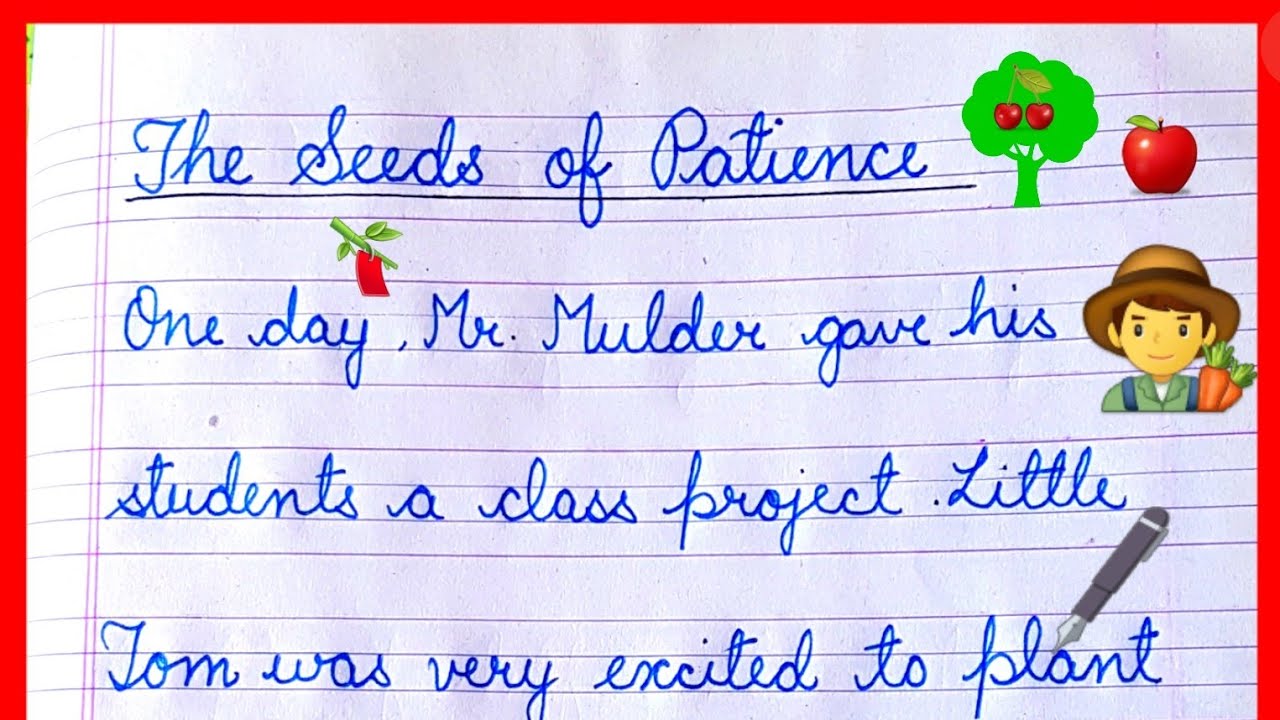 The Seeds of Patience
One day, Mr. Mulder gave his
students a class project. Little
Tom was very excited to plant